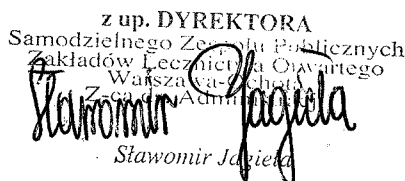 z up. DYREKTORA
Samodzielnego Zespołu Publicznych
Zakładów Lecznictwa Otwartego
Warszawa-Ochota
Z-ca Administr
Sławomir Jagieła
Sławomir Jagieła